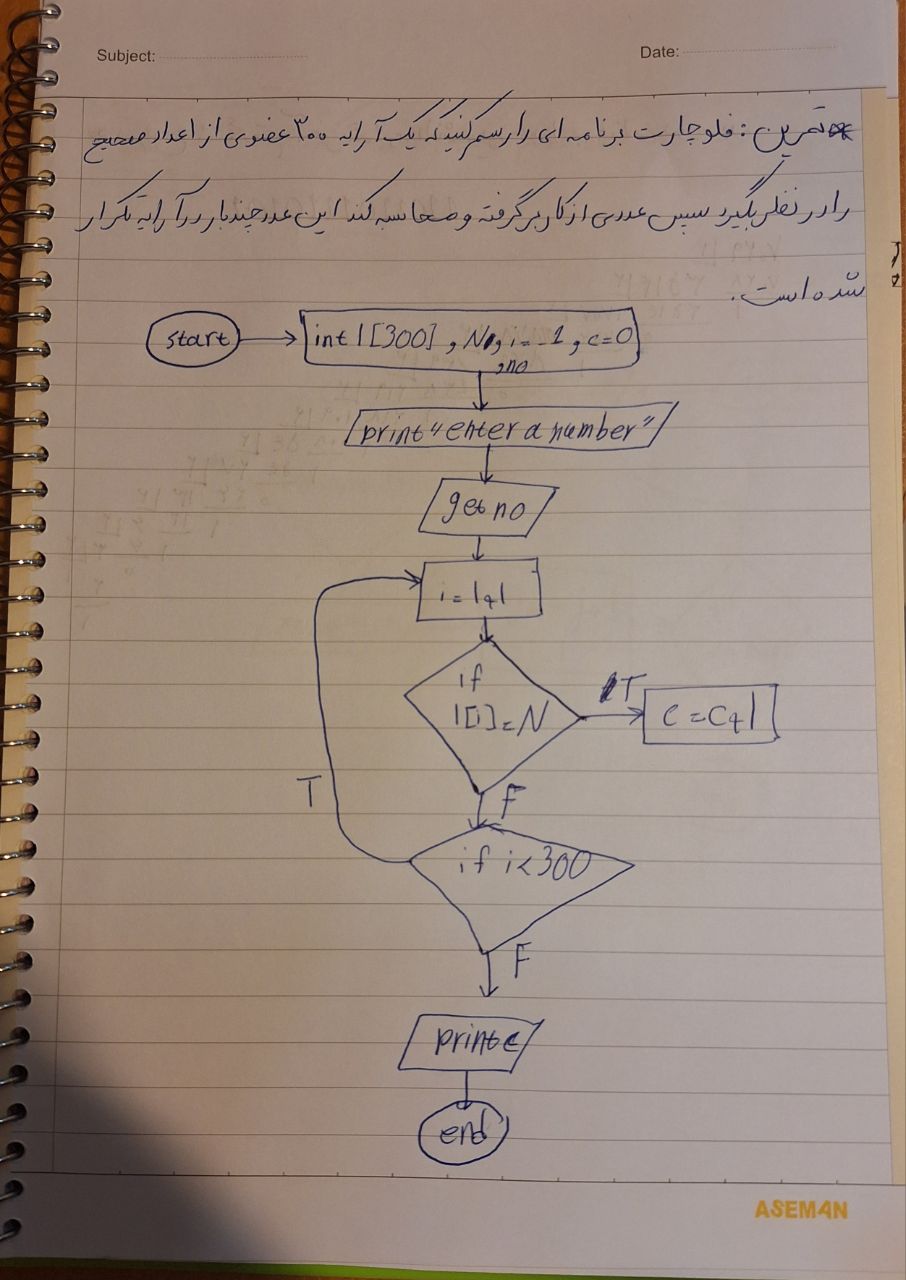 Subject:
Date:
تمرین: فلوچارت برنامه ای را رسم کنید که یک آرایه ۳۰۰ عضوی از اعداد صحیح
را در نظر بگیرد سپس عددی از کاربر گرفته و محاسبه کند این عدد چند بار در آرایه تکرار
شده است.
start
int l[300], N, i=-1, c=0
,no
print "enter a number"
get no
i=l+1
if
l[i]=N
T
c=c+1
F
T
if i<300
F
print c
end
ASEMAN